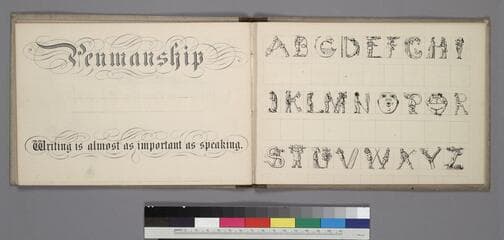 Penmanship
Writing is almost as important as speaking.
A B C D E F G H I
J K L M N O P Q R
S T U V W X Y Z